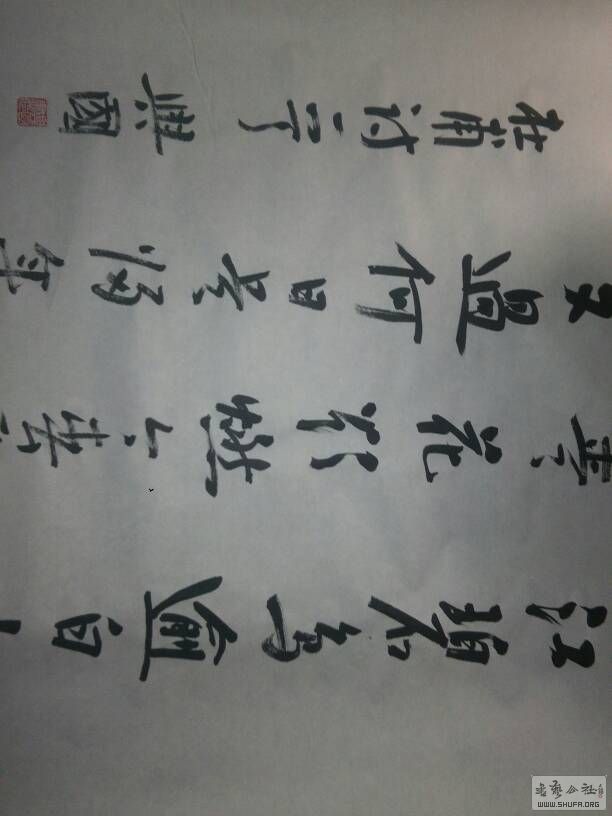 江碧鸟逾白
青花欲燃今春
又過何日是归年
杜甫诗一首 興國
书艺公社
WWW.SHUFA.ORG